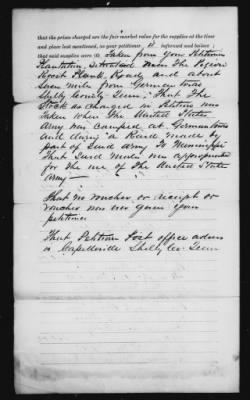 that the prices charged are the fair market value for the supplies at the time
and place last mentioned, as your petitioner is informed and believes;
that said supplies were (6) Taken from your Petitioners
Plantation, situated near the Pigeon
Roost Plank Road, and about
seven miles from Germantown
Shelby County Tenn; That the
Stock as charged in Petition was
Taken when the United States
Army was camped at Germantown
and during a Raid made by
part of said Army to Mississippi
That said mules was appropriated
for the use of the United States
Army—
That no voucher or receipt or
voucher was ever given your
petitioner
That Petitioners Post office address
is Capleville Shelby Co. Tenn